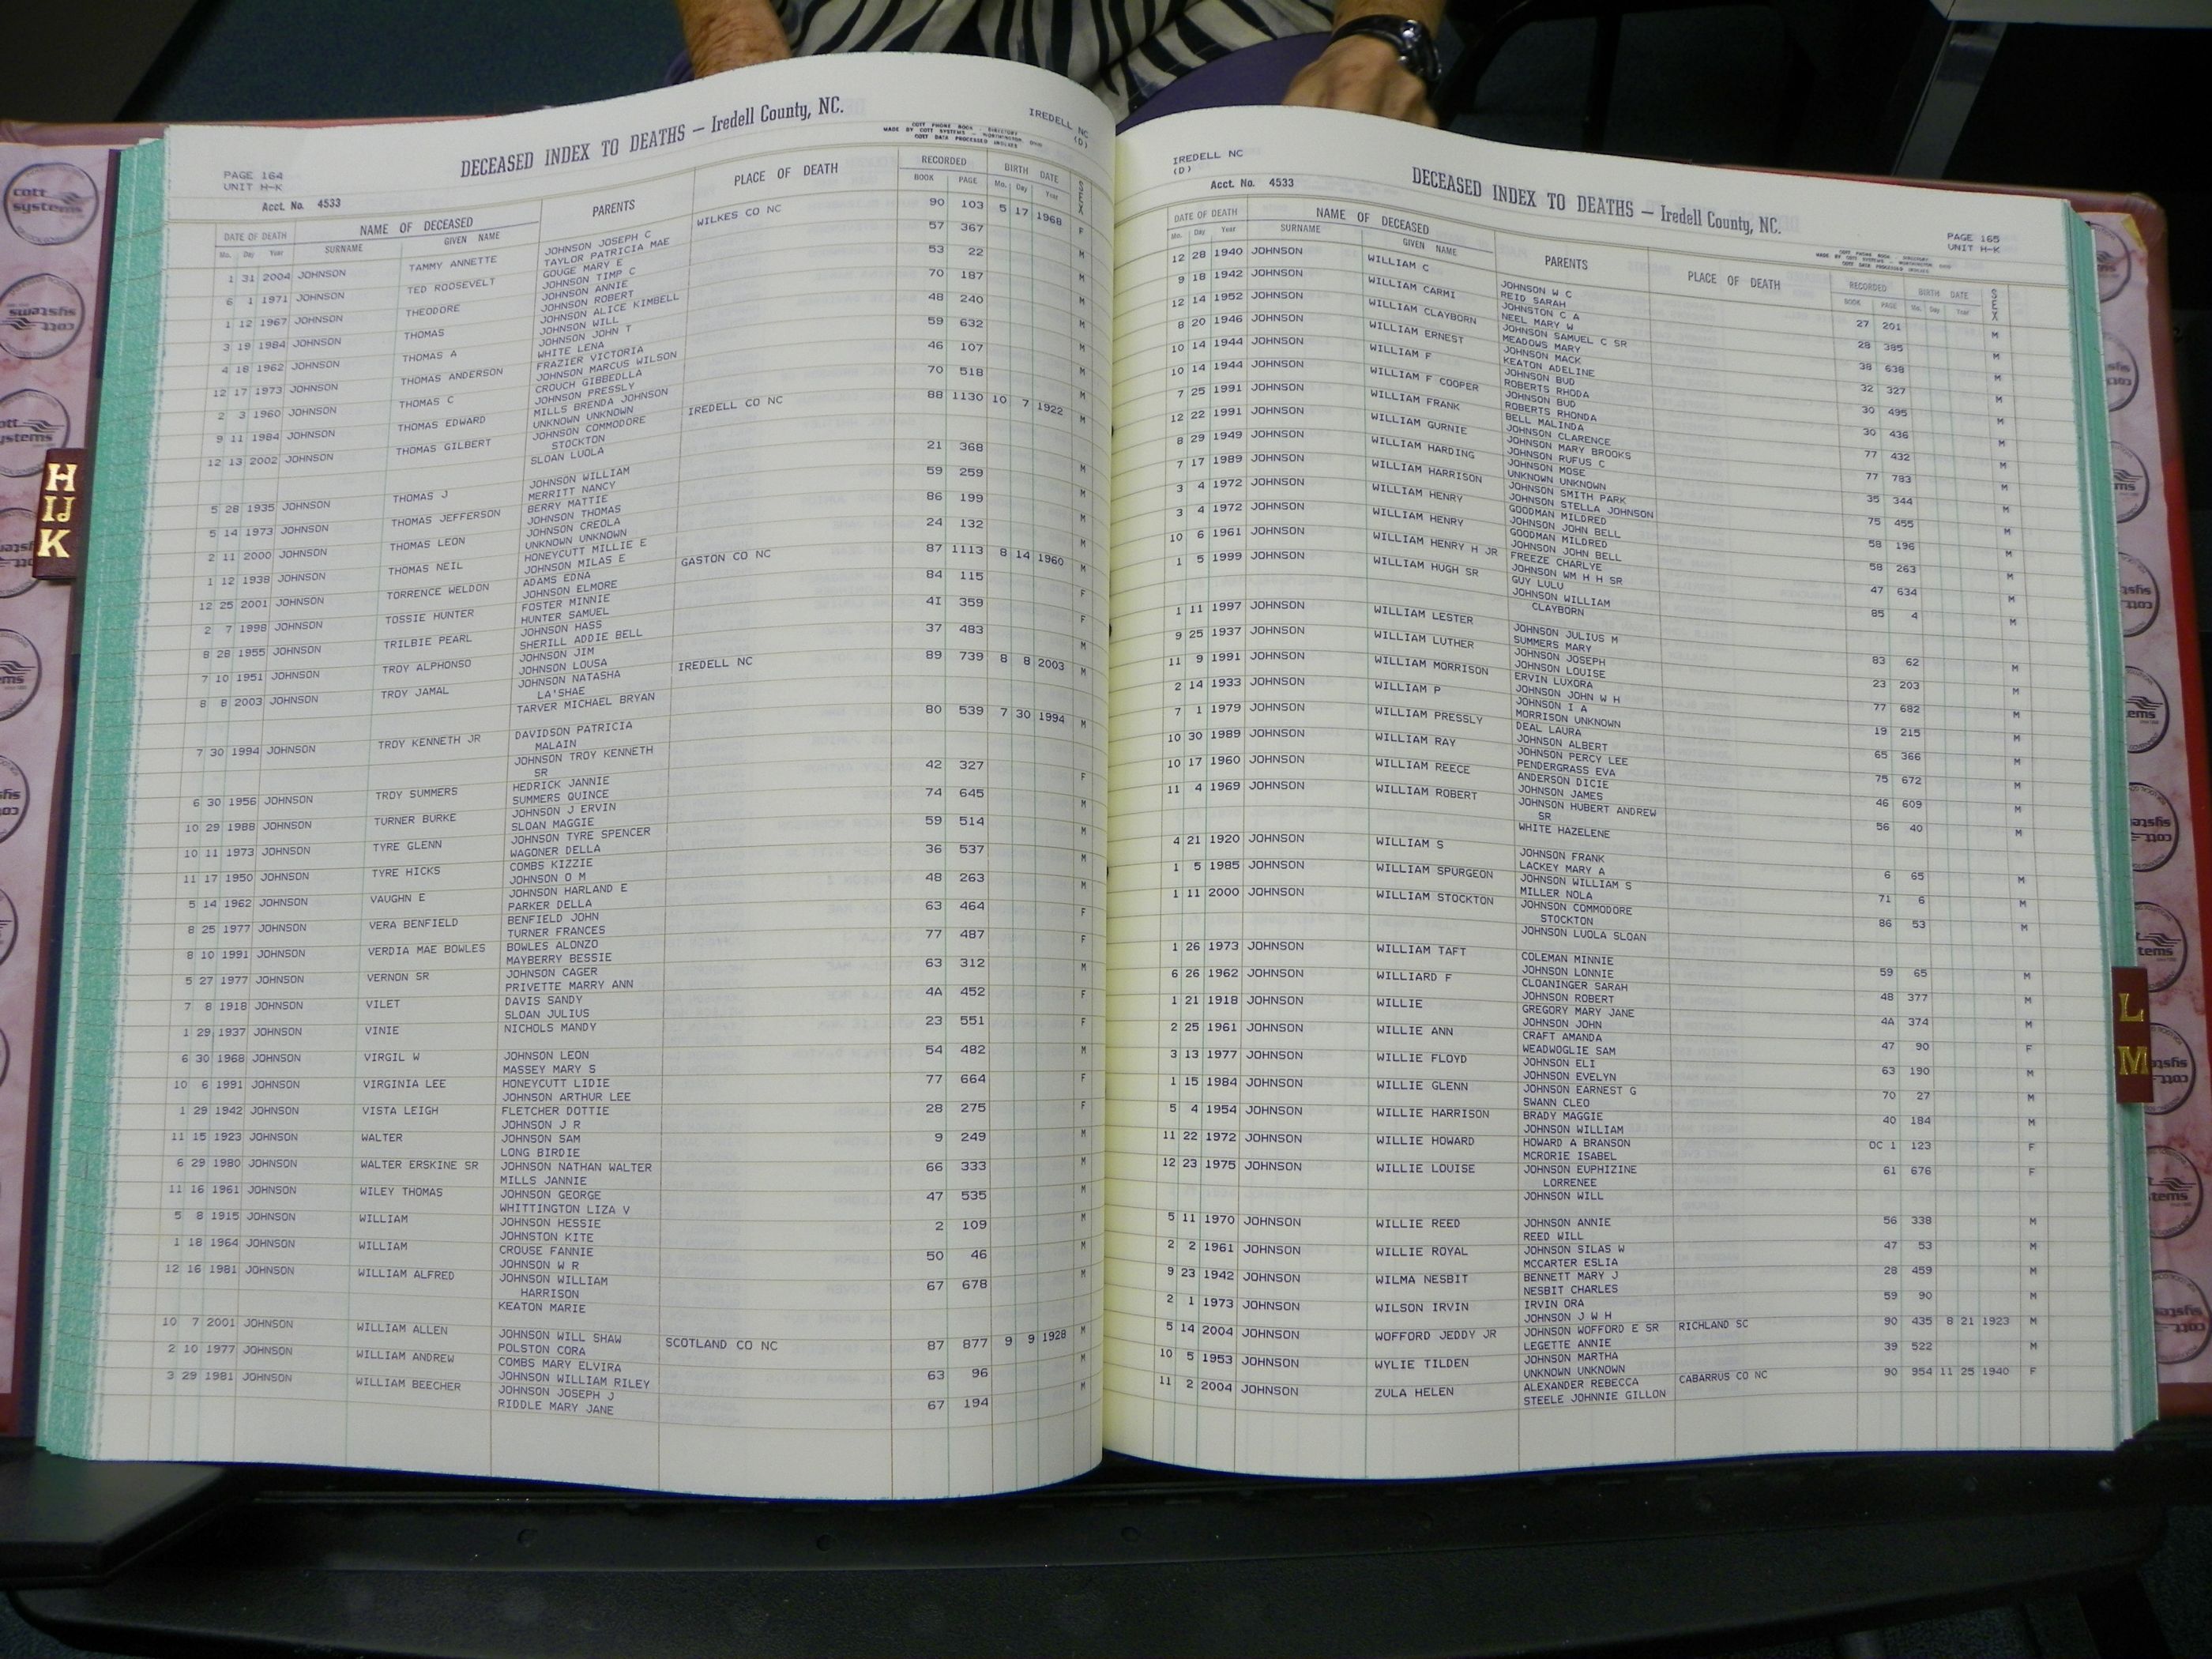 DECEASED INDEX TO DEATHS — Iredell County, NC.
IREDELL NC
(D)
PAGE 164
UNIT H-K
Acct. No. 4533
COTT PHONE BOOK - DIRECTORY
MADE BY COTT SYSTEMS - WORTHINGTON, OHIO
COTT DATA PROCESSED INDEXES
DATE OF DEATH NAME OF DECEASED PARENTS PLACE OF DEATH RECORDED BIRTH DATE SEX
Mo. Day Year SURNAME GIVEN NAME BOOK PAGE Mo. Day Year
1 31 2004 JOHNSON TAMMY ANNETTE JOHNSON JOSEPH C WILKES CO NC 90 103 5 17 1968 F
TAYLOR PATRICIA MAE
6 1 1971 JOHNSON TED ROOSEVELT GOUGE MARY E 57 367 M
JOHNSON TIMP C
1 12 1967 JOHNSON THEODORE JOHNSON ANNIE 53 22 M
JOHNSON ROBERT
3 19 1984 JOHNSON THOMAS JOHNSON ALICE KIMBELL 70 187 M
JOHNSON WILL
4 18 1962 JOHNSON THOMAS A JOHNSON JOHN T 48 240 M
WHITE LENA
12 17 1973 JOHNSON THOMAS ANDERSON FRAZIER VICTORIA 59 632 M
JOHNSON MARCUS WILSON
2 3 1960 JOHNSON THOMAS C CROUCH GIBBEDLLA 46 107 M
JOHNSON PRESSLY
9 11 1984 JOHNSON THOMAS EDWARD MILLS BRENDA JOHNSON 70 518 M
UNKNOWN UNKNOWN
12 13 2002 JOHNSON THOMAS GILBERT JOHNSON COMMODORE IREDELL CO NC 88 1130 10 7 1922 M
STOCKTON
SLOAN LUOLA
5 28 1935 JOHNSON THOMAS J JOHNSON WILLIAM 21 368 M
MERRITT NANCY
5 14 1973 JOHNSON THOMAS JEFFERSON BERRY MATTIE 59 259 M
JOHNSON THOMAS
2 11 2000 JOHNSON THOMAS LEON JOHNSON CREOLA 86 199 M
UNKNOWN UNKNOWN
1 12 1938 JOHNSON THOMAS NEIL HONEYCUTT MILLIE E 24 132 M
JOHNSON MILAS E
12 25 2001 JOHNSON TORRENCE WELDON ADAMS EDNA GASTON CO NC 87 1113 8 14 1960 M
JOHNSON ELMORE
2 7 1998 JOHNSON TOSSIE HUNTER FOSTER MINNIE 84 115 F
HUNTER SAMUEL
8 28 1955 JOHNSON TRILBIE PEARL JOHNSON HASS 41 359 F
SHERILL ADDIE BELL
7 10 1951 JOHNSON TROY ALPHONSO JOHNSON JIM 37 483 M
JOHNSON LOUSA
8 8 2003 JOHNSON TROY JAMAL JOHNSON NATASHA IREDELL NC 89 739 8 8 2003 M
LA'SHAE
TARVER MICHAEL BRYAN
7 30 1994 JOHNSON TROY KENNETH JR DAVIDSON PATRICIA 80 539 7 30 1994 M
MALAIN
JOHNSON TROY KENNETH
SR
6 30 1956 JOHNSON TROY SUMMERS HEDRICK JANNIE 42 327 F
SUMMERS QUINCE
10 29 1988 JOHNSON TURNER BURKE JOHNSON J ERVIN 74 645 M
SLOAN MAGGIE
10 11 1973 JOHNSON TYRE GLENN JOHNSON TYRE SPENCER 59 514 M
WAGONER DELLA
11 17 1950 JOHNSON TYRE HICKS COMBS KIZZIE 36 537 M
JOHNSON O M
5 14 1962 JOHNSON VAUGHN E JOHNSON HARLAND E 48 263 M
PARKER DELLA
8 25 1977 JOHNSON VERA BENFIELD BENFIELD JOHN 63 464 F
TURNER FRANCES
8 10 1991 JOHNSON VERDIA MAE BOWLES BOWLES ALONZO 77 487 F
MAYBERRY BESSIE
5 27 1977 JOHNSON VERNON SR JOHNSON CAGER 63 312 M
PRIVETTE MARRY ANN
7 8 1918 JOHNSON VILET DAVIS SANDY 4A 452 F
SLOAN JULIUS
1 29 1937 JOHNSON VINIE NICHOLS MANDY 23 551 F
6 30 1968 JOHNSON VIRGIL W JOHNSON LEON 54 482 M
MASSEY MARY S
10 6 1991 JOHNSON VIRGINIA LEE HONEYCUTT LIDIE 77 664 F
JOHNSON ARTHUR LEE
1 29 1942 JOHNSON VISTA LEIGH FLETCHER DOTTIE 28 275 F
JOHNSON J R
11 15 1923 JOHNSON WALTER JOHNSON SAM 9 249 M
LONG BIRDIE
6 29 1980 JOHNSON WALTER ERSKINE SR JOHNSON NATHAN WALTER 66 333 M
MILLS JANNIE
11 16 1961 JOHNSON WILEY THOMAS JOHNSON GEORGE 47 535 M
WHITTINGTON LIZA V
5 8 1915 JOHNSON WILLIAM JOHNSON HESSIE 2 109 M
JOHNSTON KITE
1 18 1964 JOHNSON WILLIAM CROUSE FANNIE 50 46 M
JOHNSON W R
12 16 1981 JOHNSON WILLIAM ALFRED JOHNSON WILLIAM 67 678 M
HARRISON
KEATON MARIE
10 7 2001 JOHNSON WILLIAM ALLEN JOHNSON WILL SHAW SCOTLAND CO NC 87 877 9 9 1928 M
POLSTON CORA
2 10 1977 JOHNSON WILLIAM ANDREW COMBS MARY ELVIRA 63 96 M
JOHNSON WILLIAM RILEY
3 29 1981 JOHNSON WILLIAM BEECHER JOHNSON JOSEPH J 67 194 M
RIDDLE MARY JANE
IREDELL NC
(D)
Acct. No. 4533
DECEASED INDEX TO DEATHS — Iredell County, NC.
PAGE 165
UNIT H-K
COTT PHONE BOOK - DIRECTORY
MADE BY COTT SYSTEMS - WORTHINGTON, OHIO
COTT DATA PROCESSED INDEXES
DATE OF DEATH NAME OF DECEASED PARENTS PLACE OF DEATH RECORDED BIRTH DATE SEX
Mo. Day Year SURNAME GIVEN NAME BOOK PAGE Mo. Day Year
12 28 1940 JOHNSON WILLIAM C JOHNSON W C 27 201 M
REID SARAH
9 18 1942 JOHNSON WILLIAM CARMI JOHNSTON C A 28 385 M
NEEL MARY W
12 14 1952 JOHNSON WILLIAM CLAYBORN JOHNSON SAMUEL C SR 38 638 M
MEADOWS MARY
8 20 1946 JOHNSON WILLIAM ERNEST JOHNSON MACK 32 327 M
KEATON ADELINE
10 14 1944 JOHNSON WILLIAM F JOHNSON BUD 30 495 M
ROBERTS RHODA
10 14 1944 JOHNSON WILLIAM F COOPER JOHNSON BUD 30 436 M
ROBERTS RHONDA
7 25 1991 JOHNSON WILLIAM FRANK BELL MALINDA 77 432 M
JOHNSON CLARENCE
12 22 1991 JOHNSON WILLIAM GURNIE JOHNSON MARY BROOKS 77 783 M
JOHNSON RUFUS C
8 29 1949 JOHNSON WILLIAM HARDING JOHNSON MOSE 35 344 M
UNKNOWN UNKNOWN
7 17 1989 JOHNSON WILLIAM HARRISON JOHNSON SMITH PARK 75 455 M
JOHNSON STELLA JOHNSON
3 4 1972 JOHNSON WILLIAM HENRY GOODMAN MILDRED 58 196 M
JOHNSON JOHN BELL
3 4 1972 JOHNSON WILLIAM HENRY GOODMAN MILDRED 58 263 M
JOHNSON JOHN BELL
10 6 1961 JOHNSON WILLIAM HENRY H JR FREEZE CHARLYE 47 634 M
JOHNSON WM H H SR
1 5 1999 JOHNSON WILLIAM HUGH SR GUY LULU 85 4 M
JOHNSON WILLIAM
CLAYBORN
1 11 1997 JOHNSON WILLIAM LESTER JOHNSON JULIUS M 83 62 M
SUMMERS MARY
9 25 1937 JOHNSON WILLIAM LUTHER JOHNSON JOSEPH 23 203 M
JOHNSON LOUISE
11 9 1991 JOHNSON WILLIAM MORRISON ERVIN LUXORA 77 682 M
JOHNSON JOHN W H
2 14 1933 JOHNSON WILLIAM P JOHNSON I A 19 215 M
MORRISON UNKNOWN
7 1 1979 JOHNSON WILLIAM PRESSLY DEAL LAURA 65 366 M
JOHNSON ALBERT
10 30 1989 JOHNSON WILLIAM RAY JOHNSON PERCY LEE 75 672 M
PENDERGRASS EVA
10 17 1960 JOHNSON WILLIAM REECE ANDERSON DICIE 46 609 M
JOHNSON JAMES
11 4 1969 JOHNSON WILLIAM ROBERT JOHNSON HUBERT ANDREW 56 40 M
SR
WHITE HAZELENE
4 21 1920 JOHNSON WILLIAM S JOHNSON FRANK 6 65 M
LACKEY MARY A
1 5 1985 JOHNSON WILLIAM SPURGEON JOHNSON WILLIAM S 71 6 M
MILLER NOLA
1 11 2000 JOHNSON WILLIAM STOCKTON JOHNSON COMMODORE 86 53 M
STOCKTON
JOHNSON LUOLA SLOAN
1 26 1973 JOHNSON WILLIAM TAFT COLEMAN MINNIE 59 65 M
JOHNSON LONNIE
6 26 1962 JOHNSON WILLIARD F CLOANINGER SARAH 48 377 M
JOHNSON ROBERT
1 21 1918 JOHNSON WILLIE GREGORY MARY JANE 4A 374 M
JOHNSON JOHN
2 25 1961 JOHNSON WILLIE ANN CRAFT AMANDA 47 90 F
WEADWOGLIE SAM
3 13 1977 JOHNSON WILLIE FLOYD JOHNSON ELI 63 190 M
JOHNSON EVELYN
1 15 1984 JOHNSON WILLIE GLENN JOHNSON EARNEST G 70 27 M
SWANN CLEO
5 4 1954 JOHNSON WILLIE HARRISON BRADY MAGGIE 40 184 M
JOHNSON WILLIAM
11 22 1972 JOHNSON WILLIE HOWARD HOWARD A BRANSON OC 1 123 F
MCRORIE ISABEL
12 23 1975 JOHNSON WILLIE LOUISE JOHNSON EUPHIZINE 61 676 F
LORRENEE
JOHNSON WILL
5 11 1970 JOHNSON WILLIE REED JOHNSON ANNIE 56 338 M
REED WILL
2 2 1961 JOHNSON WILLIE ROYAL JOHNSON SILAS W 47 53 M
MCCARTER ESLIA
9 23 1942 JOHNSON WILMA NESBIT BENNETT MARY J 28 459 M
NESBIT CHARLES
2 1 1973 JOHNSON WILSON IRVIN IRVIN ORA 59 90 M
JOHNSON J W H
5 14 2004 JOHNSON WOFFORD JEDDY JR JOHNSON WOFFORD E SR RICHLAND SC 90 435 8 21 1923 M
LEGETTE ANNIE
10 5 1953 JOHNSON WYLIE TILDEN JOHNSON MARTHA 39 522 M
UNKNOWN UNKNOWN
11 2 2004 JOHNSON ZULA HELEN ALEXANDER REBECCA CABARRUS CO NC 90 954 11 25 1940 F
STEELE JOHNNIE GILLON
H
IJ
K
L
M
cott
systems